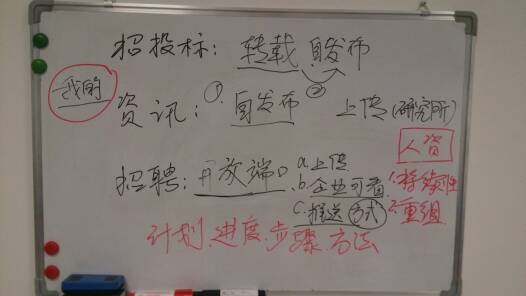 招投标: 转载 自发布
我的
资讯: ① 自发布 ② 上传(研究所)
人资
招聘: 开放端口 a.上传
b.企业可看
c.推送方式
1.持续性
2.重组
计划、进度、步骤、方法